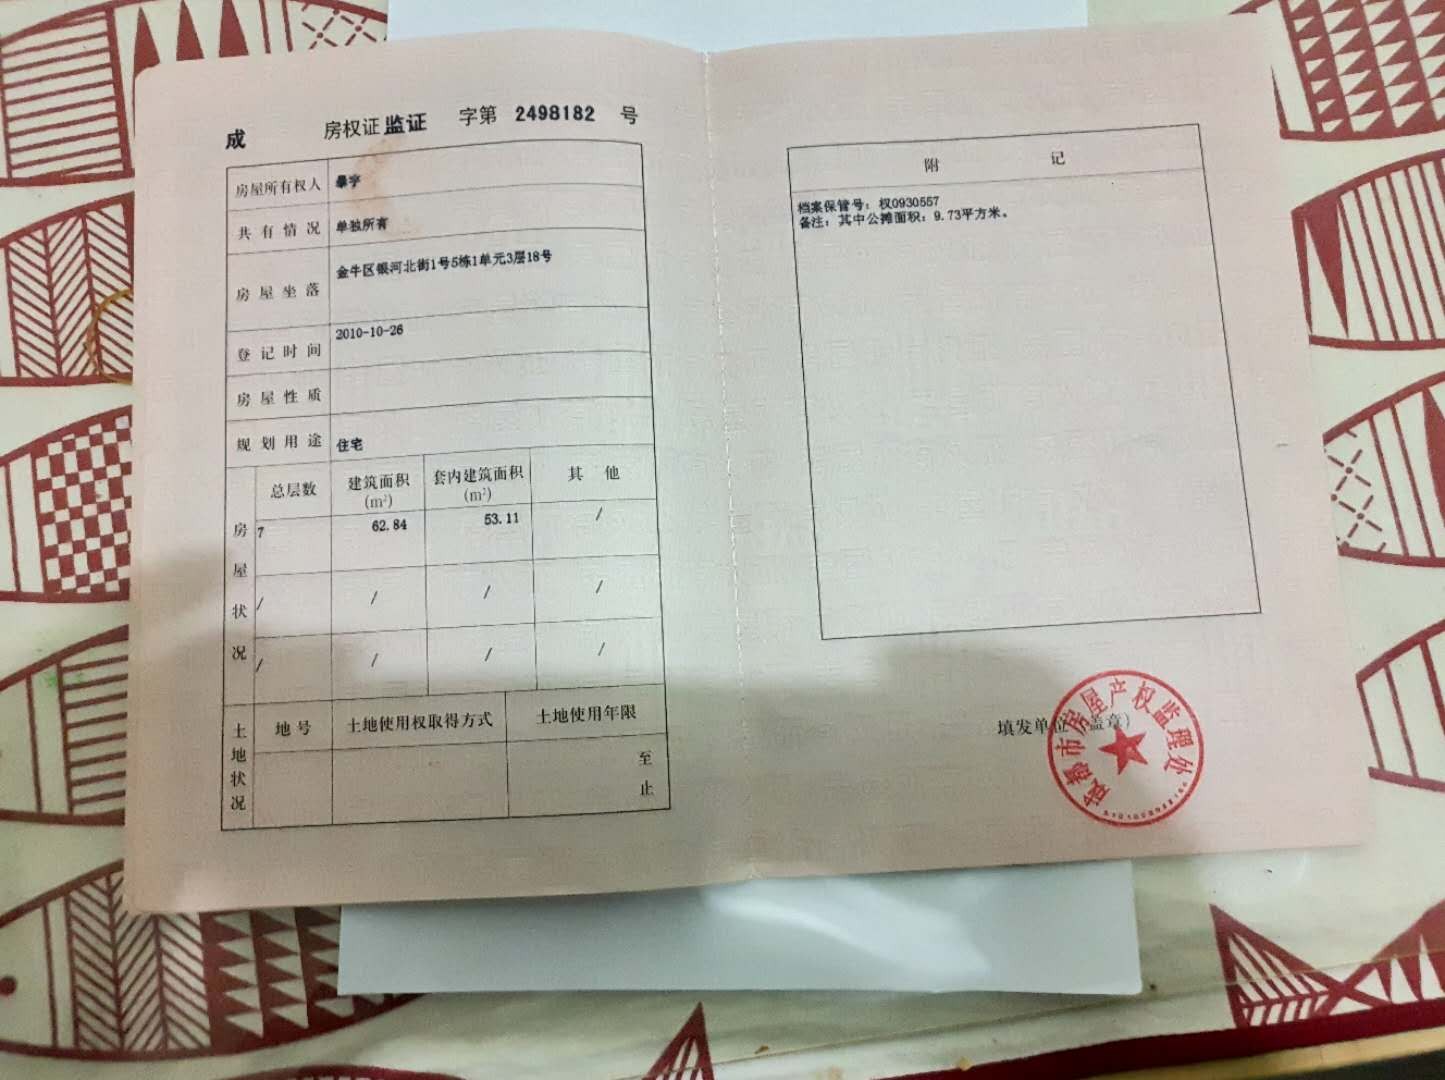 成 房权证 监证 字第 2498182 号
房屋所有权人
共有情况 单独所有
房屋坐落 金牛区银河北街1号5栋1单元3层18号
登记时间 2010-10-26
房屋性质
规划用途 住宅
房屋状况
总层数 建筑面积(m²) 套内建筑面积(m²) 其他
7 62.84 53.11 /
/ / / /
/ / / /
土地状况
地号 土地使用权取得方式 土地使用年限
至
止
附记
档案保管号：权0930557
备注：其中公摊面积：9.73平方米。
填发单位（盖章）
成都市房屋产权监理处